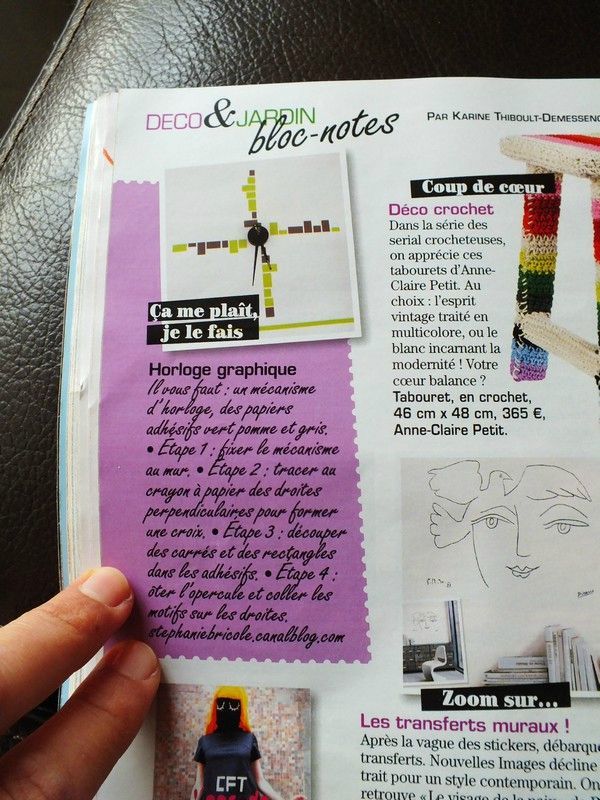 DECO & JARDIN
bloc-notes
PAR KARINE THIBOULT-DEMESSENC
Ça me plaît,
je le fais
Horloge graphique
Il vous faut : un mécanisme
d'horloge, des papiers
adhésifs vert pomme et gris.
• Étape 1 : fixer le mécanisme
au mur. • Étape 2 : tracer au
crayon à papier des droites
perpendiculaires pour former
une croix. • Étape 3 : découper
des carrés et des rectangles
dans les adhésifs. • Étape 4 :
ôter l'opercule et coller les
motifs sur les droites.
stephaniebricole.canalblog.com
CFT
Coup de cœur
Déco crochet
Dans la série des
serial crocheteuses,
on apprécie ces
tabourets d'Anne-
Claire Petit. Au
choix : l'esprit
vintage traité en
multicolore, ou le
blanc incarnant la
modernité ! Votre
cœur balance ?
Tabouret, en crochet,
46 cm x 48 cm, 365 €,
Anne-Claire Petit.
Picasso
Zoom sur...
Les transferts muraux !
Après la vague des stickers, débarque
transferts. Nouvelles Images décline
trait pour un style contemporain. On
retrouve « Le visage de la